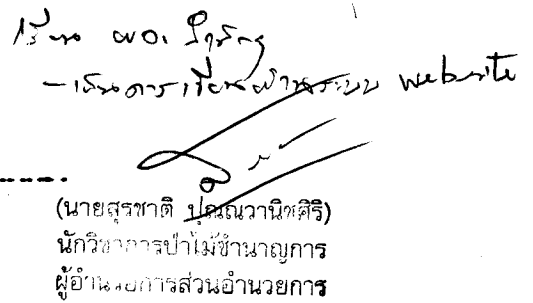 เรียน ผอ. สำนัก
- เห็นควรเวียนผ่านระบบ website
(นายสุรชาติ ปุณณวานิชศิริ)
นักวิชาการป่าไม้ชำนาญการ
ผู้อำนวยการส่วนอำนวยการ